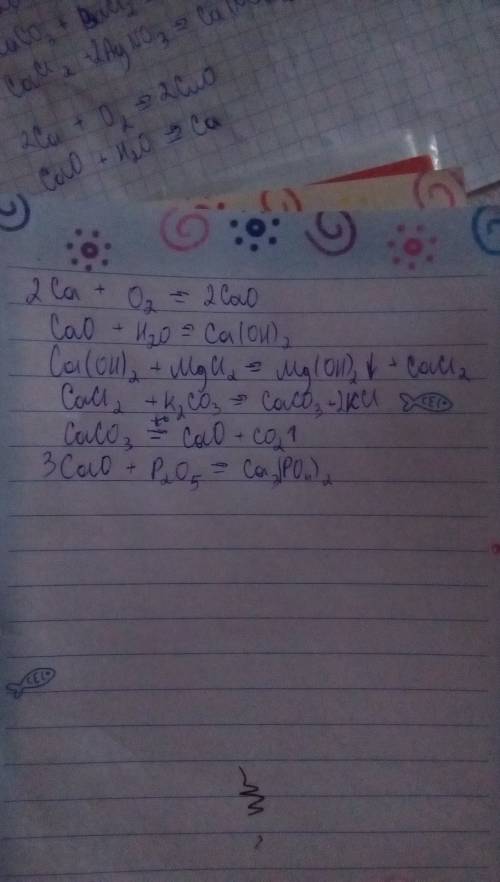 CaCl₂ + 2AgNO₃ =
2Ca + O₂ = 2CaO
CaO + H₂O = Ca
2Ca + O₂ = 2CaO
CaO + H₂O = Ca(OH)₂
Ca(OH)₂ + MgCl₂ = Mg(OH)₂↓ + CaCl₂
CaCl₂ + K₂CO₃ = CaCO₃ + 2KCl
CaCO₃ =t°= CaO + CO₂↑
3CaO + P₂O₅ = Ca₃(PO₄)₂